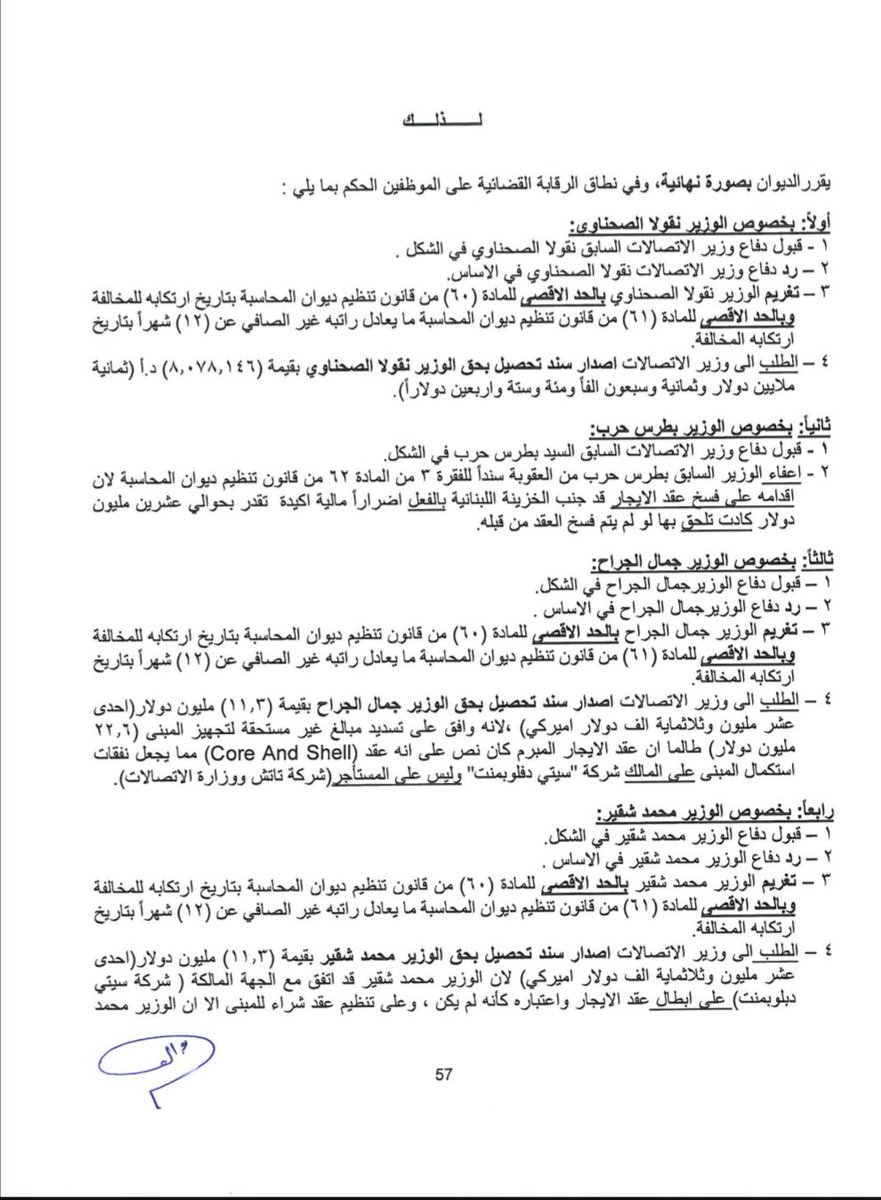 لـــــذلـــــك
يقرر الديوان بصورة نهائية، وفي نطاق الرقابة القضائية على الموظفين الحكم بما يلي :
أولاً: بخصوص الوزير نقولا الصحناوي:
١ - قبول دفاع وزير الاتصالات السابق نقولا الصحناوي في الشكل .
٢ – رد دفاع وزير الاتصالات نقولا الصحناوي في الاساس.
٣ – تغريم الوزير نقولا الصحناوي بالحد الاقصى للمادة (٦٠) من قانون تنظيم ديوان المحاسبة بتاريخ ارتكابه للمخالفة
وبالحد الاقصى للمادة (٦١) من قانون تنظيم ديوان المحاسبة ما يعادل راتبه غير الصافي عن (١٢) شهراً بتاريخ
ارتكابه المخالفة.
٤ – الطلب الى وزير الاتصالات اصدار سند تحصيل بحق الوزير نقولا الصحناوي بقيمة (٨,٠٧٨,١٤٦) د.أ (ثمانية
ملايين دولار وثمانية وسبعون الفاً ومئة وستة واربعين دولاراً).
ثانياً: بخصوص الوزير بطرس حرب:
١ - قبول دفاع وزير الاتصالات السابق السيد بطرس حرب في الشكل.
٢ - اعفاء الوزير السابق بطرس حرب من العقوبة سنداً للفقرة ٣ من المادة ٦٢ من قانون تنظيم ديوان المحاسبة لان
اقدامه على فسخ عقد الايجار قد جنب الخزينة اللبنانية بالفعل اضراراً مالية اكيدة تقدر بحوالي عشرين مليون
دولار كادت تلحق بها لو لم يتم فسخ العقد من قبله.
ثالثاً: بخصوص الوزير جمال الجراح:
١ – قبول دفاع الوزيرجمال الجراح في الشكل.
٢ – رد دفاع الوزيرجمال الجراح في الاساس .
٣ – تغريم الوزير جمال الجراح بالحد الاقصى للمادة (٦٠) من قانون تنظيم ديوان المحاسبة بتاريخ ارتكابه للمخالفة
وبالحد الاقصى للمادة (٦١) من قانون تنظيم ديوان المحاسبة ما يعادل راتبه غير الصافي عن (١٢) شهراً بتاريخ
ارتكابه المخالفة.
٤ – الطلب الى وزير الاتصالات اصدار سند تحصيل بحق الوزير جمال الجراح بقيمة (١١,٣) مليون دولار(احدى
عشر مليون وثلاثماية الف دولار اميركي) ،لانه وافق على تسديد مبالغ غير مستحقة لتجهيز المبنى (٢٢,٦
مليون دولار) طالما ان عقد الايجار المبرم كان نص على انه عقد (Core And Shell) مما يجعل نفقات
استكمال المبنى على المالك شركة "سيتي دفلوبمنت" وليس على المستأجر(شركة تاتش ووزارة الاتصالات).
رابعاً: بخصوص الوزير محمد شقير:
١ – قبول دفاع الوزير محمد شقير في الشكل.
٢ – رد دفاع الوزير محمد شقير في الاساس .
٣ – تغريم الوزير محمد شقير بالحد الاقصى للمادة (٦٠) من قانون تنظيم ديوان المحاسبة بتاريخ ارتكابه للمخالفة
وبالحد الاقصى للمادة (٦١) من قانون تنظيم ديوان المحاسبة ما يعادل راتبه غير الصافي عن (١٢) شهراً بتاريخ
ارتكابه المخالفة.
٤ – الطلب الى وزير الاتصالات اصدار سند تحصيل بحق الوزير محمد شقير بقيمة (١١,٣) مليون دولار(احدى
عشر مليون وثلاثماية الف دولار اميركي) لان الوزير محمد شقير قد اتفق مع الجهة المالكة ( شركة سيتي
دبلوبمنت) على ابطال عقد الايجار واعتباره كأنه لم يكن ، وعلى تنظيم عقد شراء للمبنى الا ان الوزير محمد
57